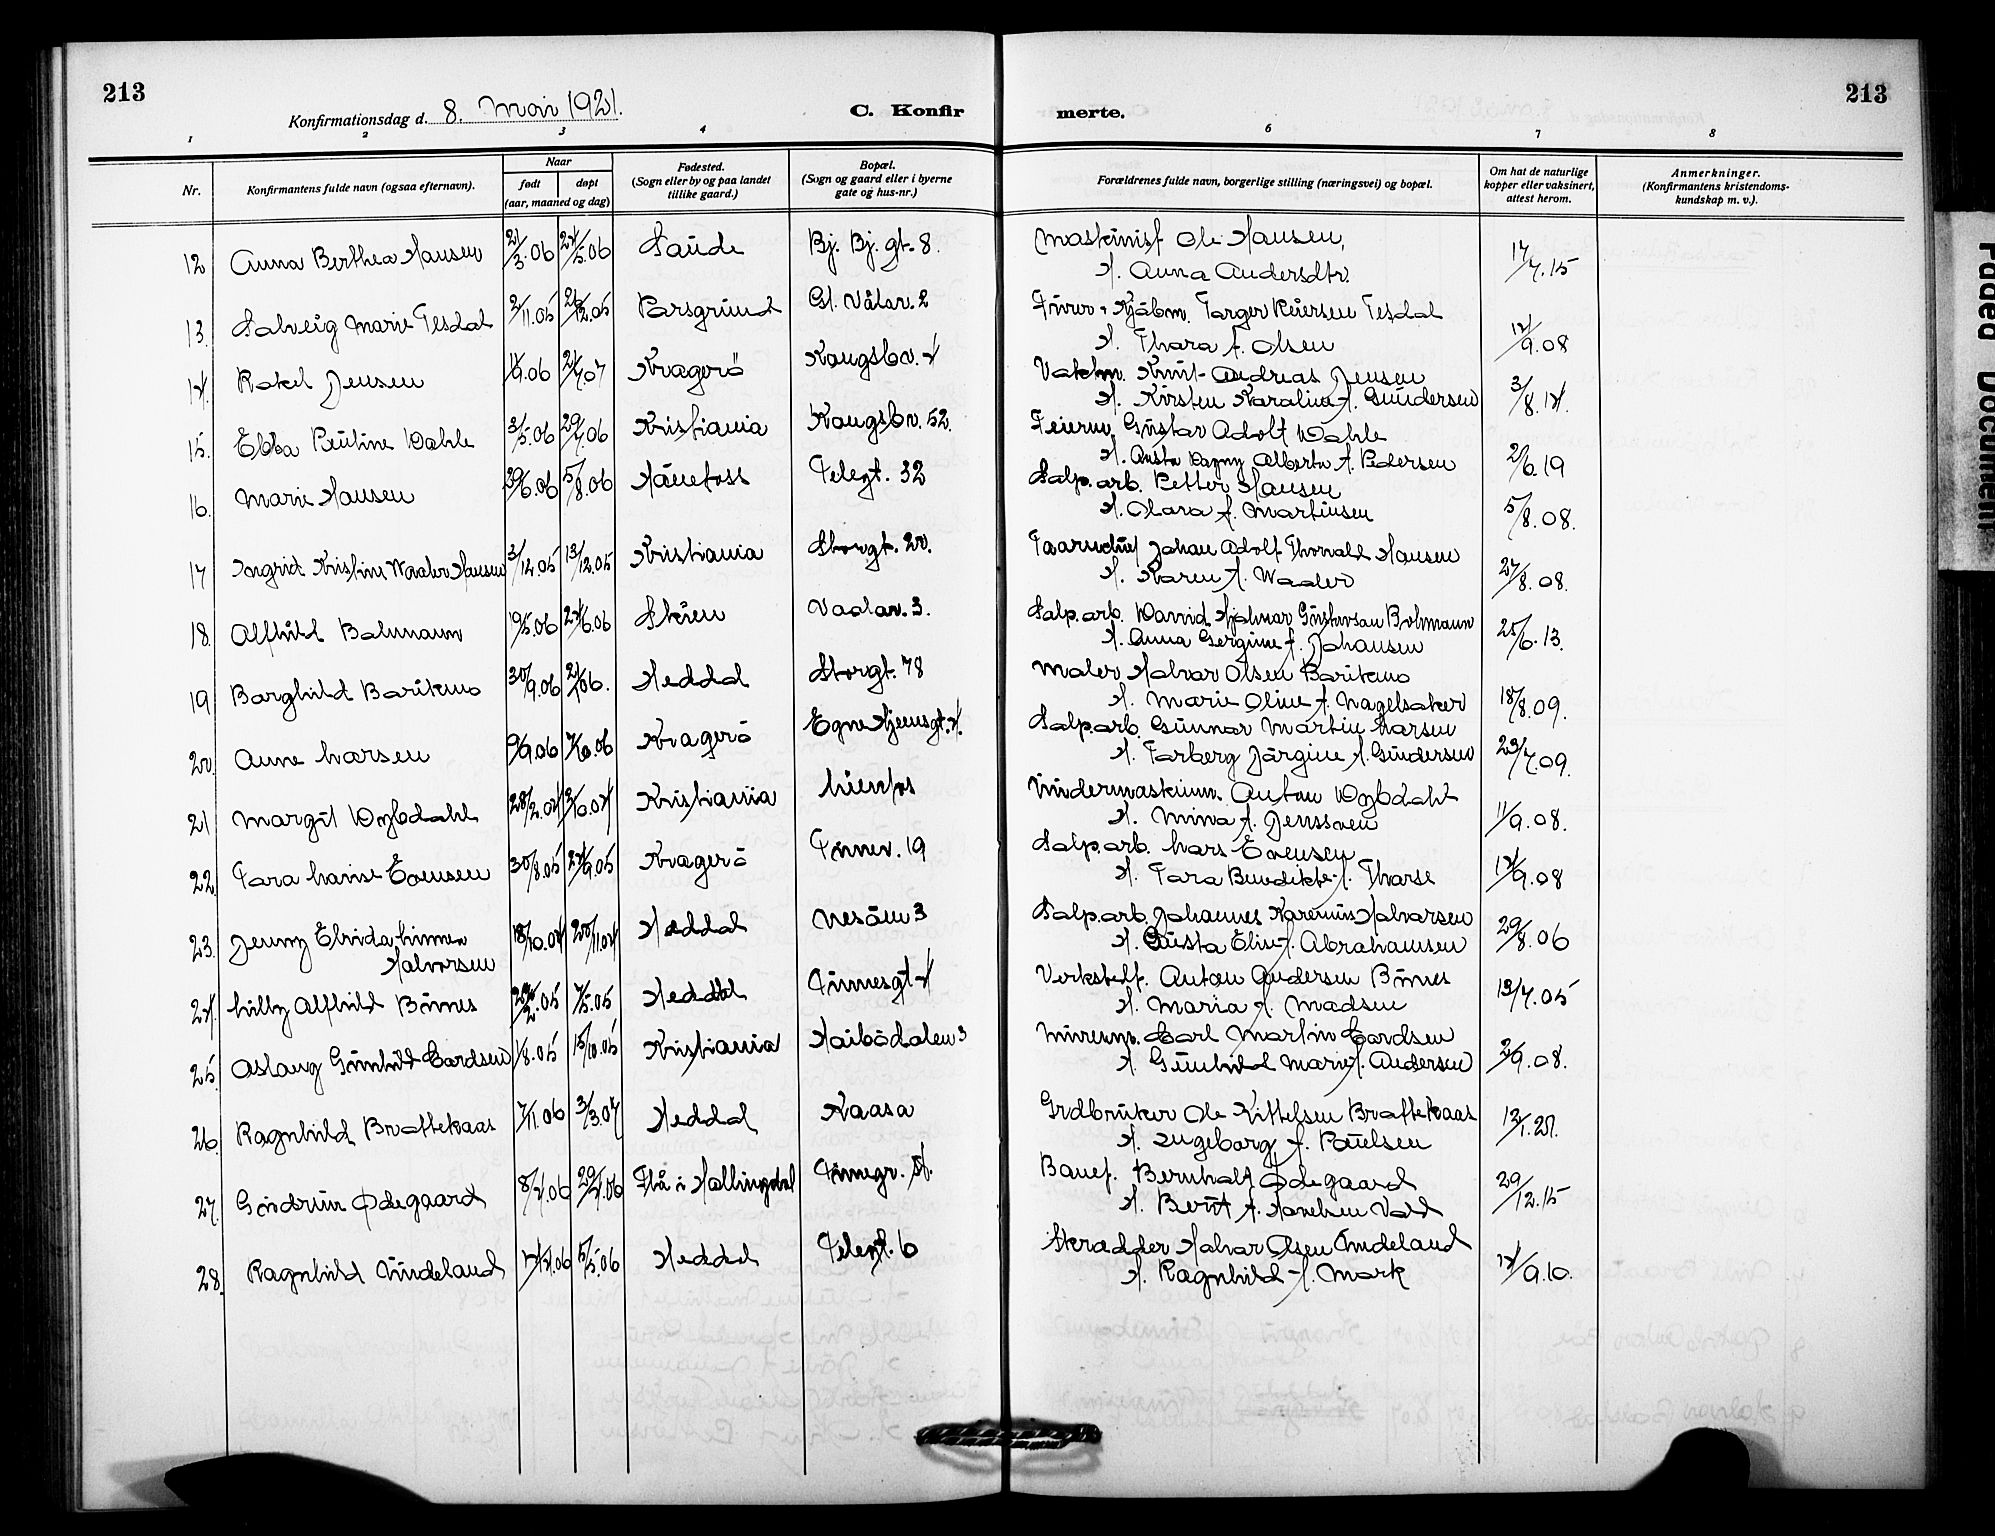 213
213
Konfirmationsdag d. 8. Mai 1921.
C. Konfirmerte.
1 2 3 4 6 7 8
Nr.
Konfirmantens fulde navn (ogsaa efternavn).
Naar
født døpt
(aar, maaned og dag)
Fødested.
(Sogn eller by og paa landet
tillike gaard.)
Bopæl.
(Sogn og gaard eller i byerne
gate og hus-nr.)
Forældrenes fulde navn, borgerlige stilling (næringsvei) og bopæl.
Om hat de naturlige
kopper eller vaksinert,
attest herom.
Anmerkninger.
(Konfirmantens kristendoms-
kundskap m. v.).
12 Anna Berthea Hansen 21/3.06 24/5.06 Saude Bj. Bj. gt. 8. Maskinist Ole Hansen, 17/7.15
H. Anna Andersdtr.
13. Solveig Marie Tesdal 3/11.05 Porsgrund Gl. Vålav. 2 Torger Reiersen Tesdal
H. Thora f. Olsen 12/9.08
14. Rakel Jensen 1/9.06 2/4.07 Kragerö Kongsbv. 4 Vaktm. Knut Andreas Jensen
H. Kirsten Karoline f. Gundersen 3/8.14.
15. Ebba Pauline Dahle 3/5.06 29/7.06 Kristiania Kongsbv. 52. Feierm. Gustav Adolf Dahle
H. Aasta Dagny Alberta f. Pedersen 2/6.19
16. Marie Hansen 29/6.06 5/8.06 Hönefoss Telegt. 32 Salp.arb. Petter Hansen
H. Olava f. Martinsen 5/8.08.
17 Ingrid Kristine Waaler Hansen 3/12.05 13/12.05 Kristiania Storgt. 20. Johan Adolf Thorvald Hansen
H. Karen f. Waaler 27/8.08.
18. Alfhild Bohmann 19/5.06 24/6.06 Skien Vaalav. 3. Salp.arb. David Hjalmar Gustavsen Bohmann
H. Anna Gergine f. Johansen 25/6.13.
19 Borghild Barikmo 30/9.06 Heddal Storgt. 78 Maler Halvor Olsen Barikmo
H. Marie Oline f. Nagelsaker 18/8.09.
20. Anne Larsen 9/9.06 7/10.06 Kragerö Egne Hjemsgt. 4. Salp.arb. Gunnar Martin Larsen
H. Torborg Jörgine f. Gundersen 23/7.09.
21 Margit Dybdahl 28/2.04 2/10.04 Kristiania Lienfos Undermaskinm. Anton Dybdahl
H. Mina f. Jenssven 11/9.08.
22. Tora Lovise Evensen 30/8.05 24/9.05 Kragerö Tinnev. 19 Salp.arb. Lars Evensen
H. Tora Bendikte f. Thorse 14/9.08
23. Jenny Elvida Linnea
Halvorsen 18/10.04 20/11.04 Heddal Nesöen 3 Salp.arb. Johannes Karenius Halvorsen
H. Gusta Elise f. Abrahamsen 29/8.06
24. Lilly Alfhild Bünes 7/5.05 Heddal Tinnesgt 4 Verkstedf. Anton Andersen Bünes
H. Maria f. Madsen 13/7.05
25. Aslaug Gunhild Cordsen 1/8.05 15/10.05 Kristiania Haibödalen 3 Murerm. Carl Martin Cordsen
H. Gunhild Marie f. Andersen 2/9.08.
26. Ragnhild Brattekaas 7/1.06 3/3.07 Heddal Kaasa Grdbruker Ole Kittelsen Brattekaas
H. Ingeborg f. Poulsen 12/1.21.
27. Gudrun Ødegaard 8/4.06 29/4.06 Flå i Hallingdal Tinnegr. St. Banef. Bernhalt Ødegaard
H. Berit f. Hovelsen Vold 29/12.15
28. Ragnhild Aundeland 5/5.06 Heddal Telegt. 6 Skrædder Halvor Olsen Aundeland
H. Ragnhild f. Mork 14/9.10.
Faded Document